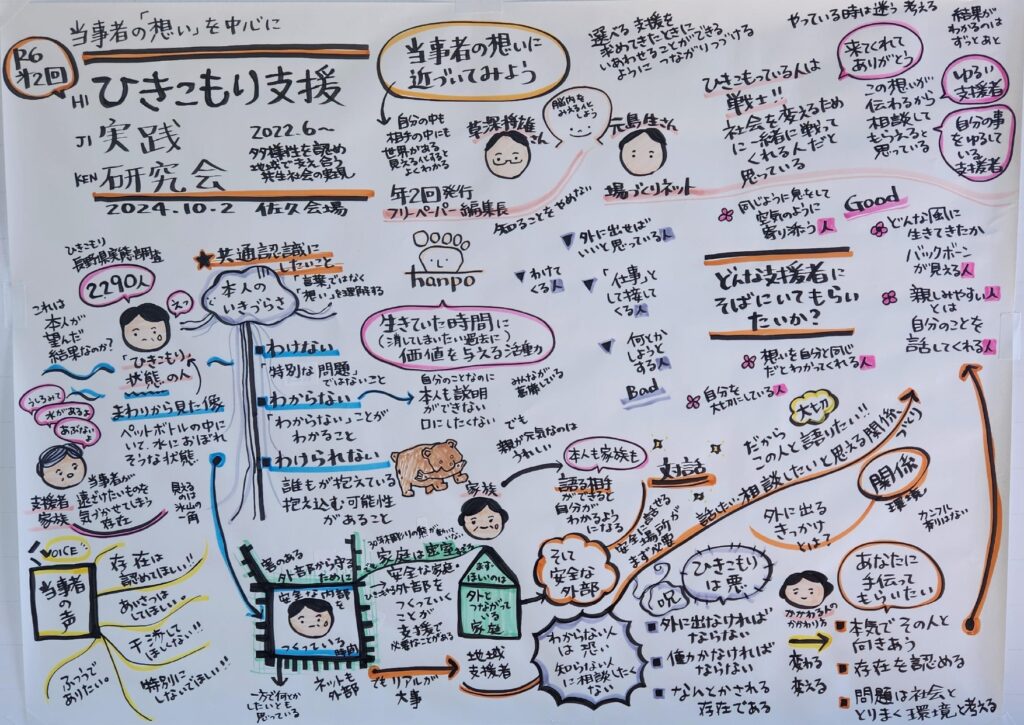 当事者の「想い」を中心に
R6
第2回
HI ひきこもり支援
JI 実践
KEN 研究会
2022.6~
多様性を認め
地域で支え合う
共生社会の実現
2024.10.2 佐久会場
当事者の想いに
近づいてみよう
自分の中も
相手の中にも
世界がある
見える化すると
よくわかる
草深将雄さん
年2回発行
フリーペーパー編集長
脳内を
みえる化
しよう
元島生さん
場づくりネット
選べる支援を
求めてきたときに
いあわせることができる
ようにつながりつづける
知ることをやめない
hanpo
やっている時は迷う考える
結果が
わかるのは
ずっとあと
ひきこもっている人は
戦士!!
社会を変えるため
に一緒に戦って
くれる人だと
思っている
来てくれて
ありがとう
この想いが
伝わるから
相談して
もらえると
思っている
ゆるい
支援者
自分の事
をゆるして
いる
支援者
ひきこもり
長野県実態調査
2290人
これは
本人が
望んだ
結果なのか?
えっ
「ひきこもり」
状態の人
まわりから見た像
ペットボトルの中
いて、水におぼれ
そうな状態
うしろみて
水があるよ
あぶないよ
支援者
家族
当事者が
遠ざけたいものを
気がかせてしまう
存在
見える
のは
氷山の
一角
★共通認識に
したいこと
「言葉ではなく
想い」を理解する
本人の
いきづらさ
わけない
「特別な問題」
ではないこと
わからない
「わからない」ことが
わかること
わけられない
誰もが抱えている
抱え込む可能性
があること
生きていた時間に
(消してしまいたい過去に)
価値を与える活動
自分のことなのに
本人も説明
ができない
口にしたくない
みんなが
葛藤している
でも
親が元気なのは
うれしい
外に出せば
いいと思っている人
わけて
くる人
「仕事」と
して接して
くる人
何とか
しようと
する人
Bad
Good
同じように息をして
空気のように
寄り添う人
どんな風に
生きてきたか
バックボーン
が見える人
どんな支援者に
そばにいてもらい
たいか?
親しみやすい人
とは
自分のことを
話してくれる人
想いを自分と同じ
だとわかってくれる人
自分を
大切にしている人
大切
だから
この人と語りたい!!
話したい相談したいと思える関係
づくり
家族
本人も家族も
語る相手
ができると
自分が
わかるよう
になる
対話
安全に話せる
場所が
まず必要
関係
環境
外に出る
きっかけ
とは?
カンフル
剤はない
VOICE
当事者
の声
存在は
認めてほしい!!
あいさつは
してほしい。
干渉して
ほしくない!!
ふつうで
ありたい。
特別に
しないでほしい!
害のある
外部から守る
ために
安全な内部を
つくっている
時間
一方で何とか
したいとも
思っている
ネットも
外部
家庭は密室
安全な家庭・
外部を
つくっていく
ことが
支援で
必要なことがある
でもリアルが
大事
まず
ほしいのは
外と
つながって
いる
家庭
地域
支援者
そして
安全な
外部
わからない人
は恐い
知らない人
に相談したく
ない
呪
ひきこもり
は悪
外に出なければ
ならない
働かなければ
ならない
なんとかされる
存在である
かかわる人の
かかわり方
変わる
変える
あなたに
手伝って
もらいたい
本気でその人と
向きあう
存在を認める
問題は社会と
とりまく環境と考える